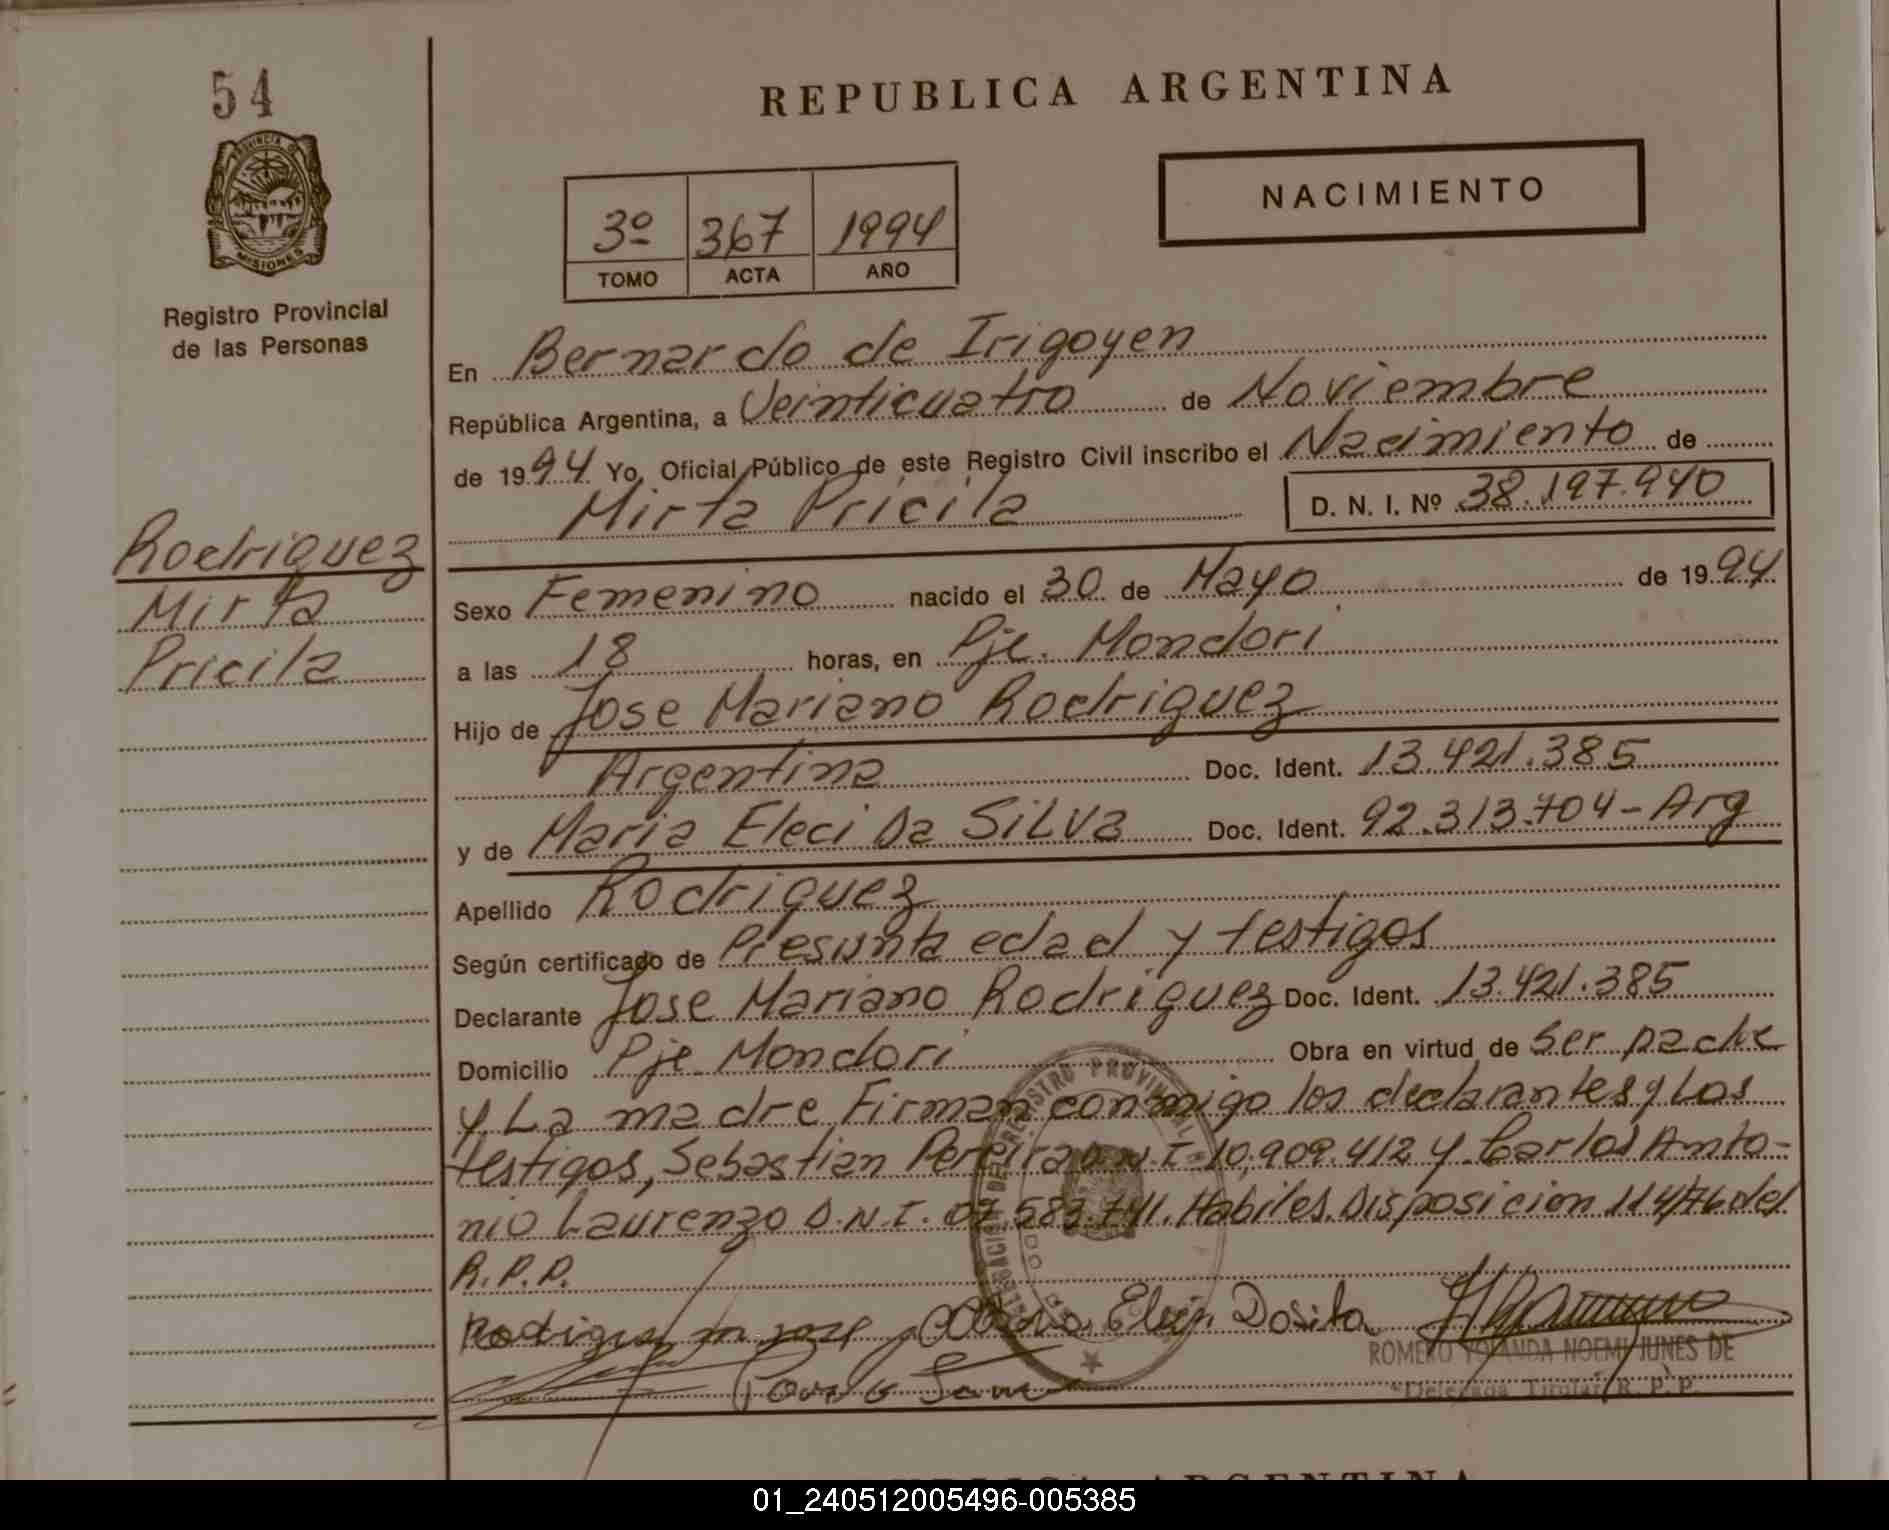 54
REPUBLICA ARGENTINA
PROVINCIA DE
MISIONES
Registro Provincial
de las Personas
NACIMIENTO
3º 367 1994
TOMO ACTA AÑO
En Bernardo de Irigoyen
República Argentina, a Veinticuatro de Noviembre
de 1994 Yo, Oficial Público de este Registro Civil inscribo el Nacimiento de
Mirta Pricila D. N. I. Nº 38.197.940
Rodriguez
Mirta
Pricila
Sexo Femenino nacido el 30 de Mayo de 1994
a las 18 horas, en Pje. Mondori
Hijo de Jose Mariano Rodriguez
Argentina Doc. Ident. 13.421.385
y de Maria Eleci Da SiLva Doc. Ident. 92.313.704-Arg
Apellido Rodriguez
Según certificado de Presunta edad y testigos
Declarante Jose Mariano Rodriguez Doc. Ident. 13.421.385
Domicilio Pje Mondori Obra en virtud de Ser padre
y La madre Firman conmigo los declarantes y Los
testigos, Sebastian Pereira D.N.I. 10.909.412 y Carlos Anto-
nio Laurenzo D.N.I. 07.583.741. Habiles. Disposicion 114/76 del
R.P.P.
DELEGACION DEL REGISTRO PROVINCIAL
ROMERO YOLANDA NOEMI JUNES DE
Delegada Titular R. P. P.
REPUBLICA ARGENTINA
01_240512005496-005385